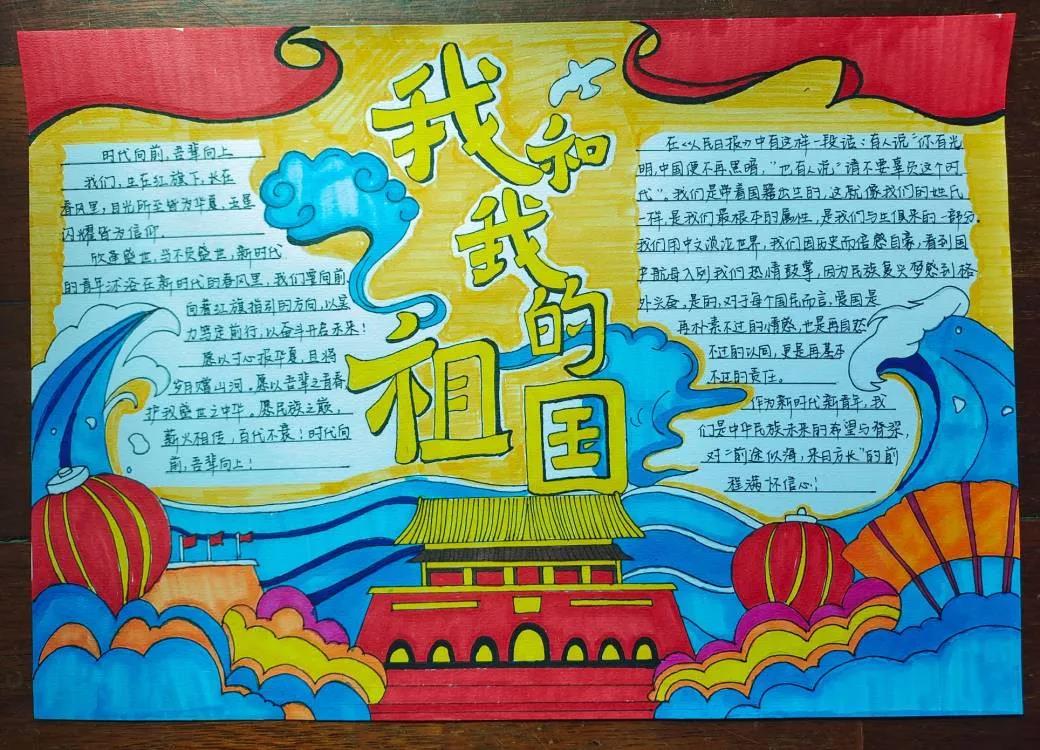 我和我的祖国
时代向前，吾辈向上
我们，生在红旗下，长在
春风里，目光所至皆为华夏，五星
闪耀皆为信仰.
欣逢盛世，当不负盛世，新时代
的青年沐浴在新时代的春风里，我们要向前
向着红旗指引的方向，以坚
力笃定前行，以奋斗开启未来！
愿以寸心报华夏，且将
岁月赠山河，愿以吾辈之青春
护我盛世之中华，愿民族之毅，
薪火相传，百代不衰！时代向
前，吾辈向上！
在《人民日报》中有这样一段话：有人说“你有光
明，中国便不再黑暗，”也有人说“请不要辜负这个时
代”。我们是带着国籍出生的，这就像我们的姓氏
一样是我们最根本的属性，是我们与生俱来的一部分.
我们用中文谈论世界，我们因历史而倍感自豪，看到国
产航母入列我们热情鼓掌，因为民族复兴梦感到格
外兴奋，是的，对于每个国民而言，爱国是
再朴素不过的情感，也是再自然
不过的认同，更是再基本
不过的责任。
作为新时代新青年，我
们是中华民族未来的希望与脊梁，
对“前途似海，来日方长”的前
程满怀信心！